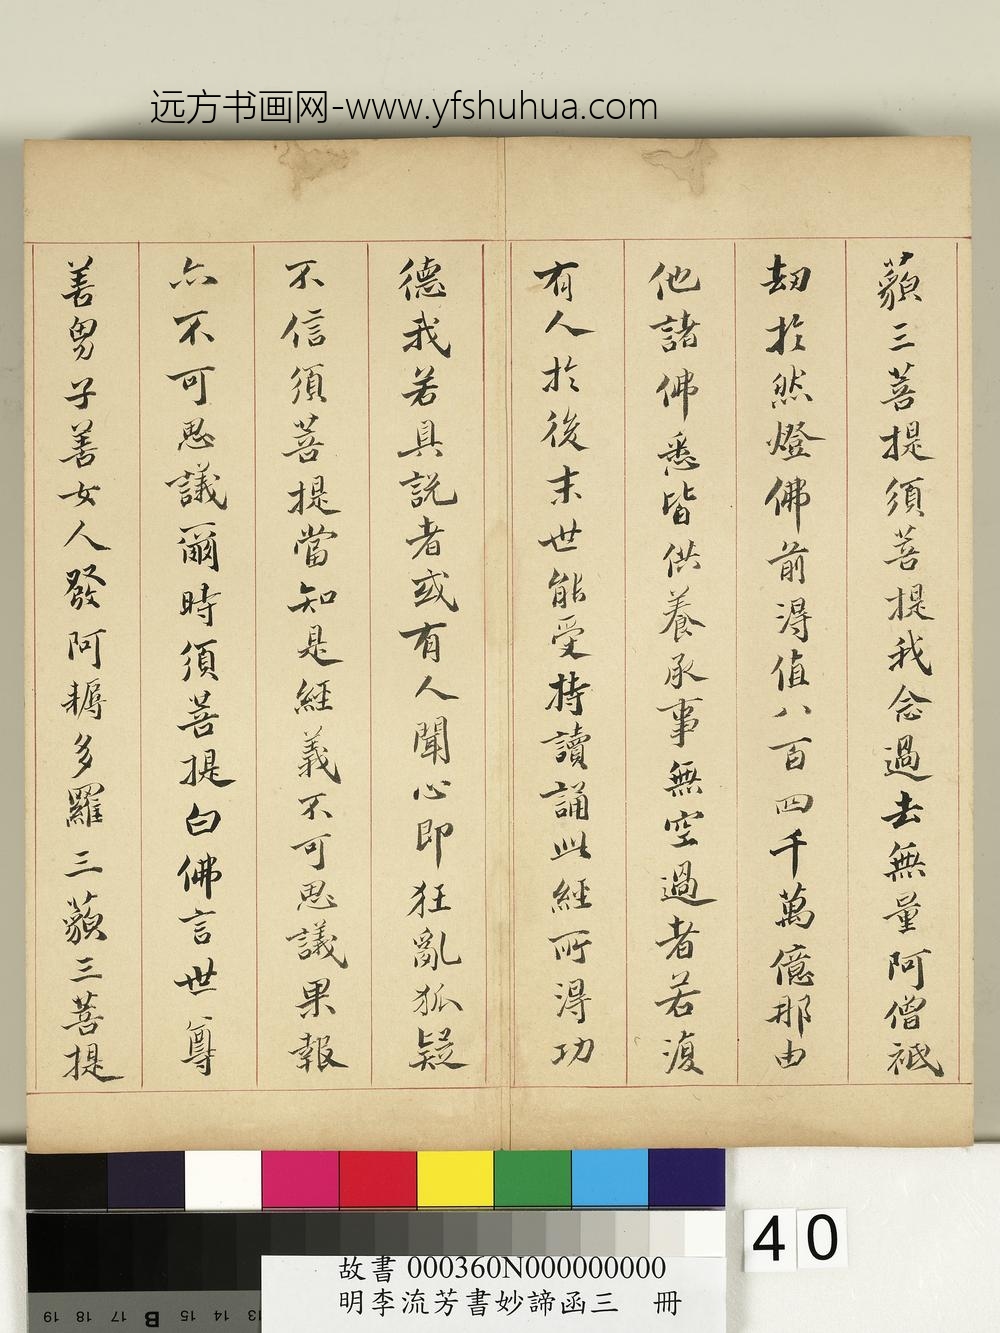 远方书画网-www.yfshuhua.com
藐三菩提須菩提我念過去無量阿僧祇
劫於然燈佛前得值八百四千萬億那由
他諸佛悉皆供養承事無空過者若復
有人於後末世能受持讀誦此經所得功
德我若具説者或有人聞心即狂亂狐疑
不信須菩提當知是經義不可思議果報
亦不可思議爾時須菩提白佛言世尊
善男子善女人發阿耨多羅三藐三菩提
40
故書 000360N000000000
明李流芳書妙諦函三 冊
19 18 17 B 15 14 13